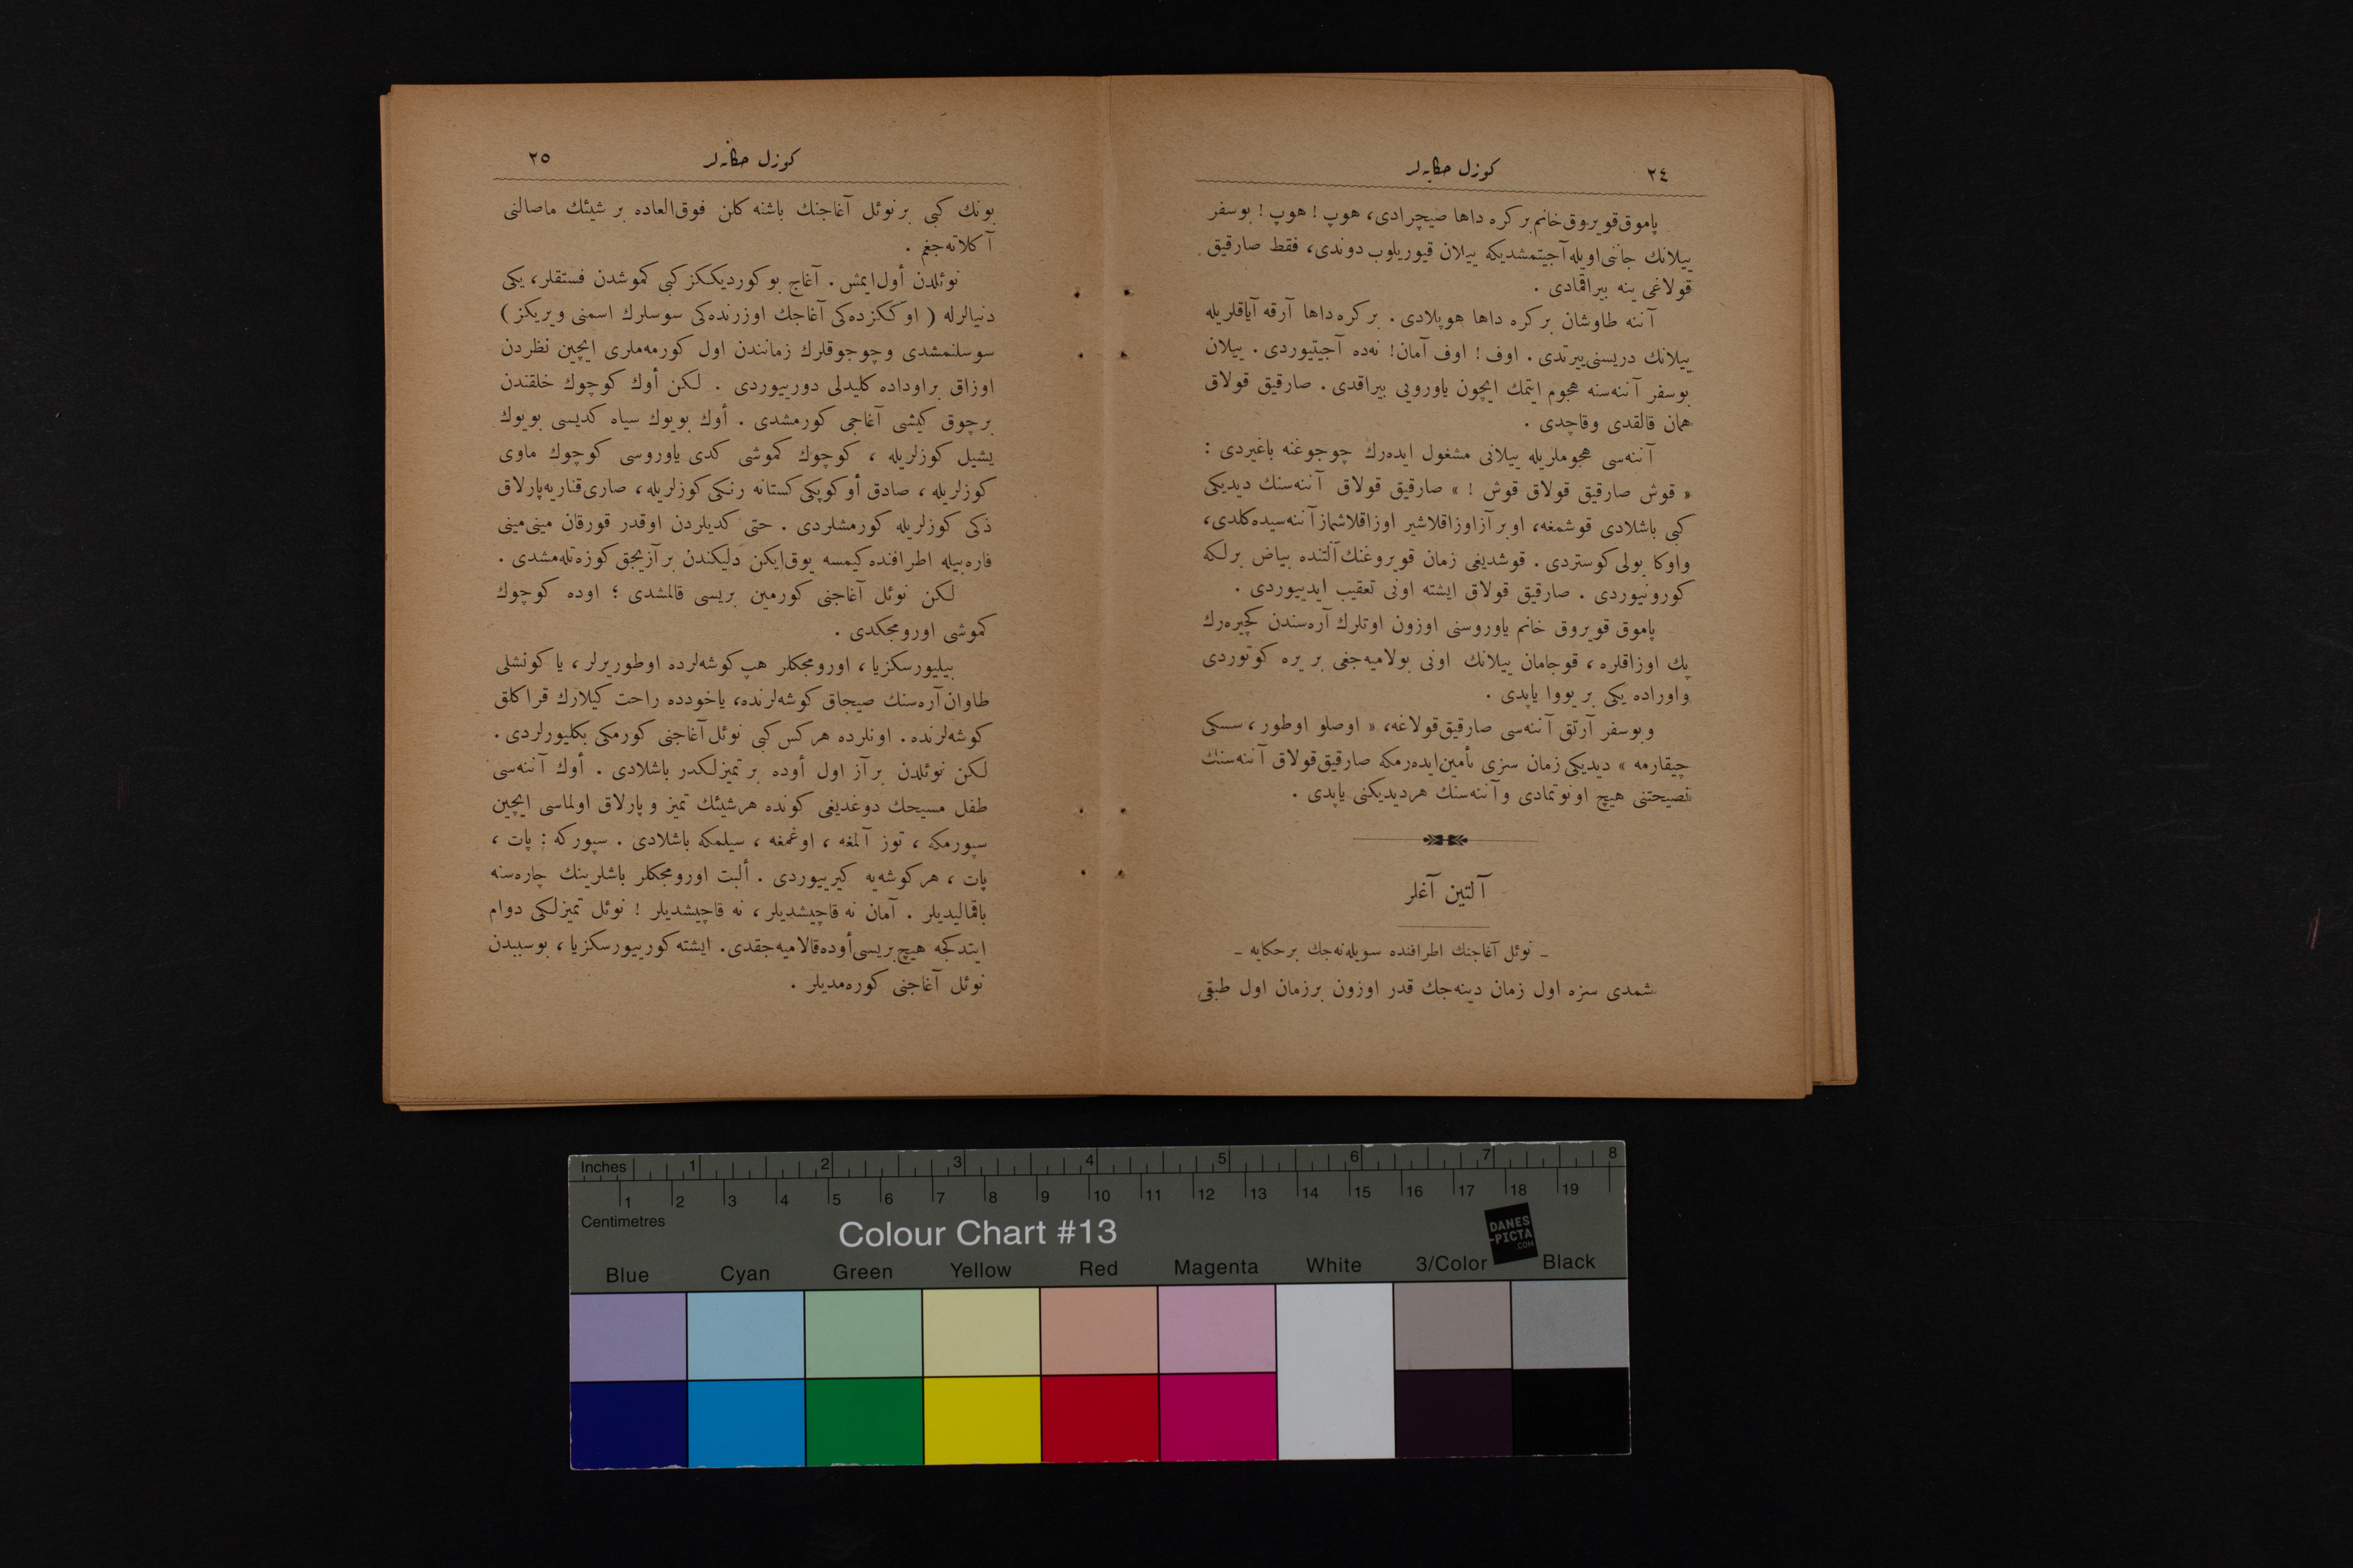 ٢٤
كوزل حكايه‌لر
پاموق‌قويروق‌خانم بر كره داها صيچرادى، هوپ ! هوپ ! بوسفر
ييلانك جاننى اويله آجيتمشديكه ييلان قيوريلوب دوندى، فقط صارقيق
قولاغى ينه بيراقمادى .
آننه طاوشان بر كره داها هوپلادى . بر كره داها آرقه آياقلريله
ييلانك دريسنى ييرتدى . اوف ! اوف آمان! نه‌ده آجيتيوردى . ييلان
بوسفر آننه‌سنه هجوم ايتمك ايچون ياورويى بيراقدى . صارقيق قولاق
همان قالقدى وقاچدى .
آننه‌سى هجوملريله ييلانى مشغول ايده‌رك چوجوغنه باغيردى :
« قوش صارقيق قولاق قوش ! » صارقيق قولاق آننه‌سنك ديديكى
كبى باشلادى قوشمغه، او بر آز اوزاقلاشير اوزاقلاشماز آننه‌سيده كلدى،
واوكا يولى كوستردى . قوشديغى زمان قويروغنك آلتنده بياض بر لكه
كورونيوردى . صارقيق قولاق ايشته اونى تعقيب ايدييوردى .
پاموق قويروق خانم ياوروسنى اوزون اوتلرك آره‌سندن كچيره‌رك
پك اوزاقلره ، قوجامان ييلانك اونى بولاميه‌جغى بر يره كوتوردى
واوراده يكى بر يووا ياپدى .
وبوسفر آرتق آننه‌سى صارقيق‌قولاغه، « اوصلو اوطور ، سسكى
چيقارمه » ديديكى زمان سزى تأمين‌ايده‌رمكه صارقيق‌قولاق آننه‌سنك
نصيحتنى هيچ اونوتمادى وآننه‌سنك هرديديكنى ياپدى .
آلتين آغلر
ـ نوئل آغاجنك اطرافنده سويله‌نه‌جك بر حكايه ـ
شمدى سزه اول زمان دينه‌جك قدر اوزون بر زمان اول طبقى
كوزل حكايه‌لر
٢٥
بونك كبى بر نوئل آغاجنك باشنه كلن فوق‌العاده بر شيئك ماصالنى
آكلاته‌جغم .
نوئلدن أول‌ايمش . آغاج بو كورديككز كبى كموشدن فستقلر، يكى
دنيالرله ( اوككزده‌كى آغاجك اوزرنده‌كى سوسلرك اسمنى ويريكز )
سوسلنمشدى وچوجوقلرك زمانندن اول كورمه‌ملرى ايچين نظردن
اوزاق بر اوداده كليدلى دورييوردى . لكن أوك كوچوك خلقندن
برچوق كيشى آغاجى كورمشدى . أوك بويوك سياه كديسى بويوك
يشيل كوزلريله ، كوچوك كموشى كدى ياوروسى كوچوك ماوى
كوزلريله ، صادق أو كوپكى كستانه رنكى كوزلريله ، صارى قناريه پارلاق
ذكى كوزلريله كورمشلردى . حتى كديلردن اوقدر قورقان مينى مينى
فاره بيله اطرافنده كيمسه يوق‌ايكن دليكندن بر آزيجق كوزه‌تله‌مشدى .
لكن نوئل آغاجنى كورمين بريسى قالمشدى ؛ اوده كوچوك
كموشى اورومجكدى .
بيليورسكزيا ، اورومجكلر هپ كوشه‌لرده اوطوريرلر ، يا كونشلى
طاوان آره‌سنك صيجاق كوشه‌لرنده، ياخودده راحت كيلارك قراكلق
كوشه‌لرنده . اونلرده هركس كبى نوئل آغاجنى كورمكى بكليورلردى .
لكن نوئلدن بر آز اول أوده بر تميزلكدر باشلادى . أوك آننه‌سى
طفل مسيحك دوغديغى كونده هرشيئك تميز و پارلاق اولماسى ايچين
سپورمكه ، توز آلمغه ، اوغمغه ، سيلمكه باشلادى . سپوركه : پات ،
پات ، هر كوشه‌يه كيرييوردى . ألبت اورومجكلر باشلرينك چاره‌سنه
باقماليديلر . آمان نه قاچيشديلر ، نه قاچيشديلر ! نوئل تميزلكى دوام
ايتدكجه هيچ بريسى أوده قالاميه‌جقدى . ايشته كورييورسكزيا ، بوسببدن
نوئل آغاجنى كوره‌مديلر .
Inches 1 2 3 4 5 6 7 8
1 2 3 4 5 6 7 8 9 10 11 12 13 14 15 16 17 18 19
Centimetres
Colour Chart #13
DANES
-PICTA
.COM
Blue Cyan Green Yellow Red Magenta White 3/Color Black